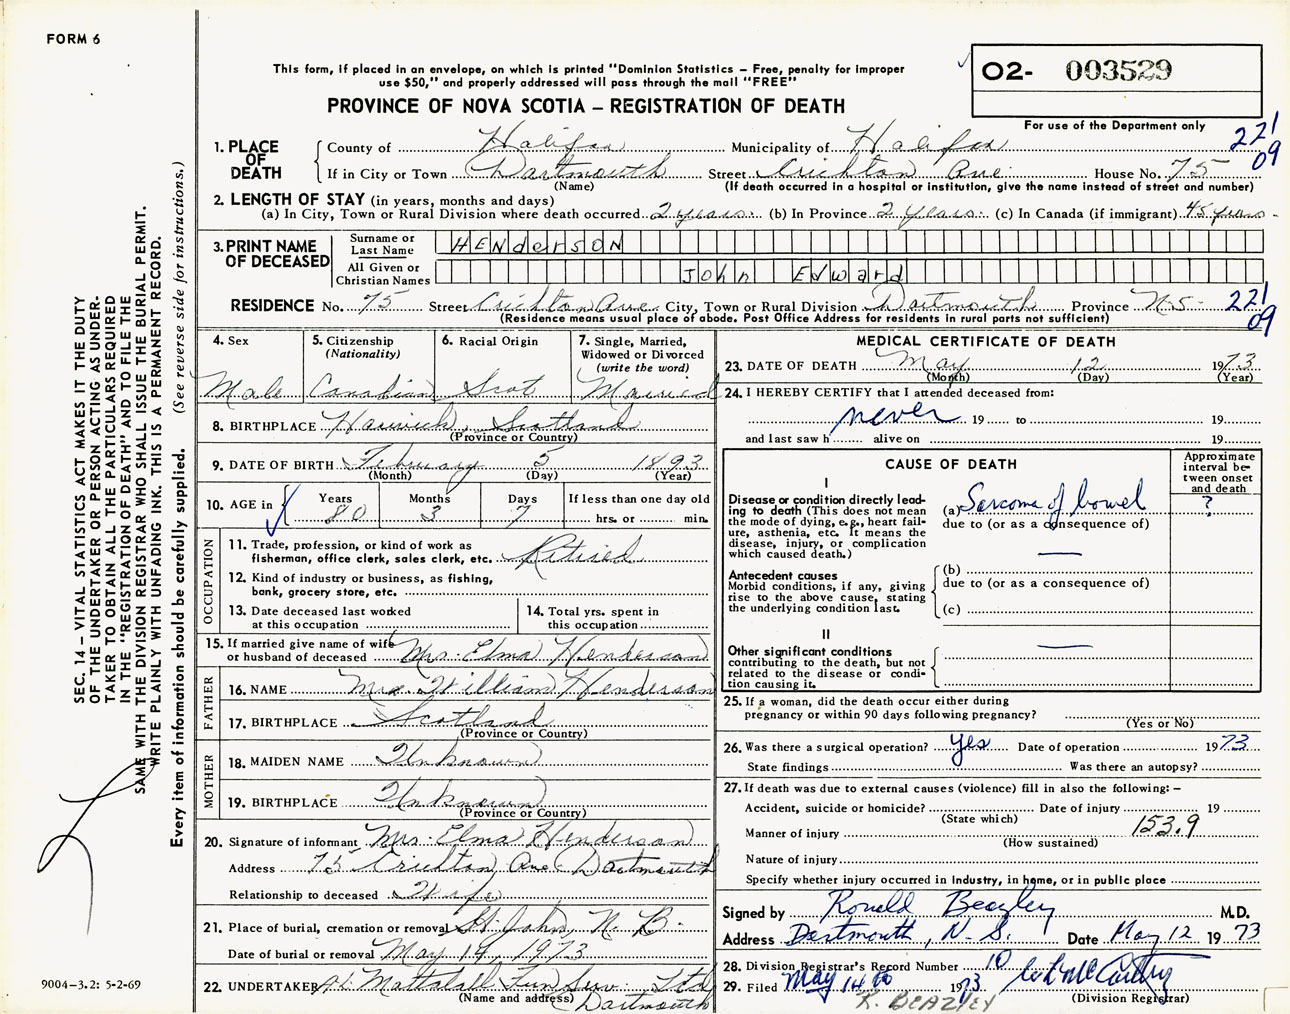 FORM 6
This form, if placed in an envelope, on which is printed "Dominion Statistics – Free, penalty for improper
use $50," and properly addressed will pass through the mail "FREE"
PROVINCE OF NOVA SCOTIA – REGISTRATION OF DEATH
O2- 003529
For use of the Department only
221
09
1. PLACE OF DEATH
County of Halifax Municipality of Halifax
If in City or Town Dartmouth Street Crichton Ave House No. 75
(Name) (If death occurred in a hospital or institution, give the name instead of street and number)
2. LENGTH OF STAY (in years, months and days)
(a) In City, Town or Rural Division where death occurred 2 years (b) In Province 2 years (c) In Canada (if immigrant) 45 years
3. PRINT NAME OF DECEASED
Surname or Last Name HENdersoN
All Given or Christian Names John Edward
RESIDENCE No. 75 Street Crichton Ave City, Town or Rural Division Dartmouth Province N.S. 221
(Residence means usual place of abode. Post Office Address for residents in rural parts not sufficient) 09
4. Sex Male
5. Citizenship (Nationality) Canadian
6. Racial Origin Scot
7. Single, Married, Widowed or Divorced (write the word) Married
8. BIRTHPLACE Hawick, Scotland
(Province or Country)
9. DATE OF BIRTH February 5 1893
(Month) (Day) (Year)
10. AGE in Years 80 Months 3 Days 7 If less than one day old
hrs. or min.
OCCUPATION
11. Trade, profession, or kind of work as
fisherman, office clerk, sales clerk, etc. Retired
12. Kind of industry or business, as fishing,
bank, grocery store, etc.
13. Date deceased last worked
at this occupation
14. Total yrs. spent in
this occupation
15. If married give name of wife
or husband of deceased Mrs. Elma Henderson
FATHER
16. NAME Mr. William Henderson
17. BIRTHPLACE Scotland
(Province or Country)
MOTHER
18. MAIDEN NAME Unknown
19. BIRTHPLACE Unknown
(Province or Country)
20. Signature of informant Mrs. Elma Henderson
Address 75 Crichton Ave Dartmouth
Relationship to deceased Wife
21. Place of burial, cremation or removal St. John, N.B.
Date of burial or removal May 14, 1973
22. UNDERTAKER Mattatall Fun Serv. Ltd
(Name and address) Dartmouth
MEDICAL CERTIFICATE OF DEATH
23. DATE OF DEATH May 12 1973
(Month) (Day) (Year)
24. I HEREBY CERTIFY that I attended deceased from:
never 19 to 19
and last saw h alive on 19
CAUSE OF DEATH
Approximate interval between onset and death
I
Disease or condition directly leading to death (This does not mean the mode of dying, e.g., heart failure, asthenia, etc. It means the disease, injury, or complication which caused death.)
(a) Sarcoma of bowel ?
due to (or as a consequence of)
Antecedent causes
Morbid conditions, if any, giving rise to the above cause, stating the underlying condition last.
(b)
due to (or as a consequence of)
(c)
II
Other significant conditions
contributing to the death, but not related to the disease or condition causing it.
25. If a woman, did the death occur either during
pregnancy or within 90 days following pregnancy?
(Yes or No)
26. Was there a surgical operation? yes Date of operation 1973
State findings Was there an autopsy?
27. If death was due to external causes (violence) fill in also the following: –
Accident, suicide or homicide? Date of injury 19
(State which) 153.9
Manner of injury
(How sustained)
Nature of injury
Specify whether injury occurred in industry, in home, or in public place
Signed by Ronald Beazley M.D.
Address Dartmouth, N.S. Date May 12 1973
28. Division Registrar's Record Number 10
29. Filed May 14th 1973 McCarthy
(Division Registrar)
R. BEAZLEY
SEC. 14 – VITAL STATISTICS ACT MAKES IT THE DUTY
OF THE UNDERTAKER OR PERSON ACTING AS UNDER-
TAKER TO OBTAIN ALL THE PARTICULARS REQUIRED
IN THE "REGISTRATION OF DEATH" AND TO FILE THE
SAME WITH THE DIVISION REGISTRAR WHO SHALL ISSUE THE BURIAL PERMIT.
WRITE PLAINLY WITH UNFADING INK. THIS IS A PERMANENT RECORD.
Every item of information should be carefully supplied. (See reverse side for instructions.)
9004-3.2: 5-2-69